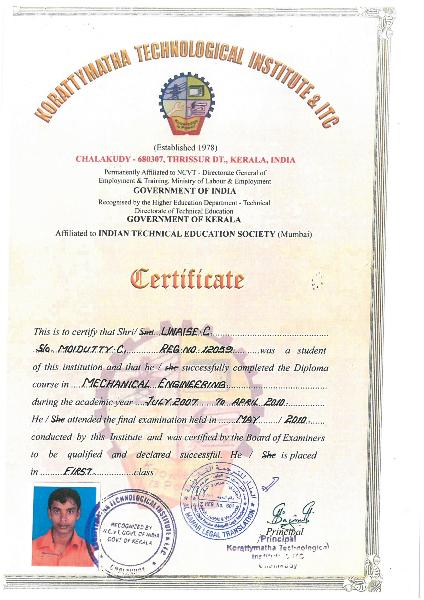 KORATTYMATHA TECHNOLOGICAL INSTITUTE & ITC
(Established 1978)
CHALAKUDY - 680307, THRISSUR DT., KERALA, INDIA
Permanently Affiliated to NCVT - Directorate General of
Employment & Training, Ministry of Labour & Employment
GOVERNMENT OF INDIA
Recognised by the Higher Education Department - Technical
Directorate of Technical Education
GOVERNMENT OF KERALA
Affiliated to INDIAN TECHNICAL EDUCATION SOCIETY (Mumbai)
Certificate
This is to certify that Shri/ Smt. UNAISE C.
S/o. MOIDUTTY C, REG NO. 12059 was a student
of this institution and that he / she successfully completed the Diploma
course in MECHANICAL ENGINEERING
during the academic year JULY 2007 TO APRIL 2010
He / She attended the final examination held in MAY / 2010
conducted by this Institute and was certified by the Board of Examiners
to be qualified and declared successful. He / She is placed
in FIRST class
KORATTYMATHA TECHNOLOGICAL INSTITUTE & ITC
RECOGNIZED BY
N.C.V.T. GOVT. OF INDIA
GOVT OF KERALA
CHALAKUDY
LEGAL TRANSLATION
Principal
Principal
Korattymatha Technological
Institute & ITC
Chalakudy